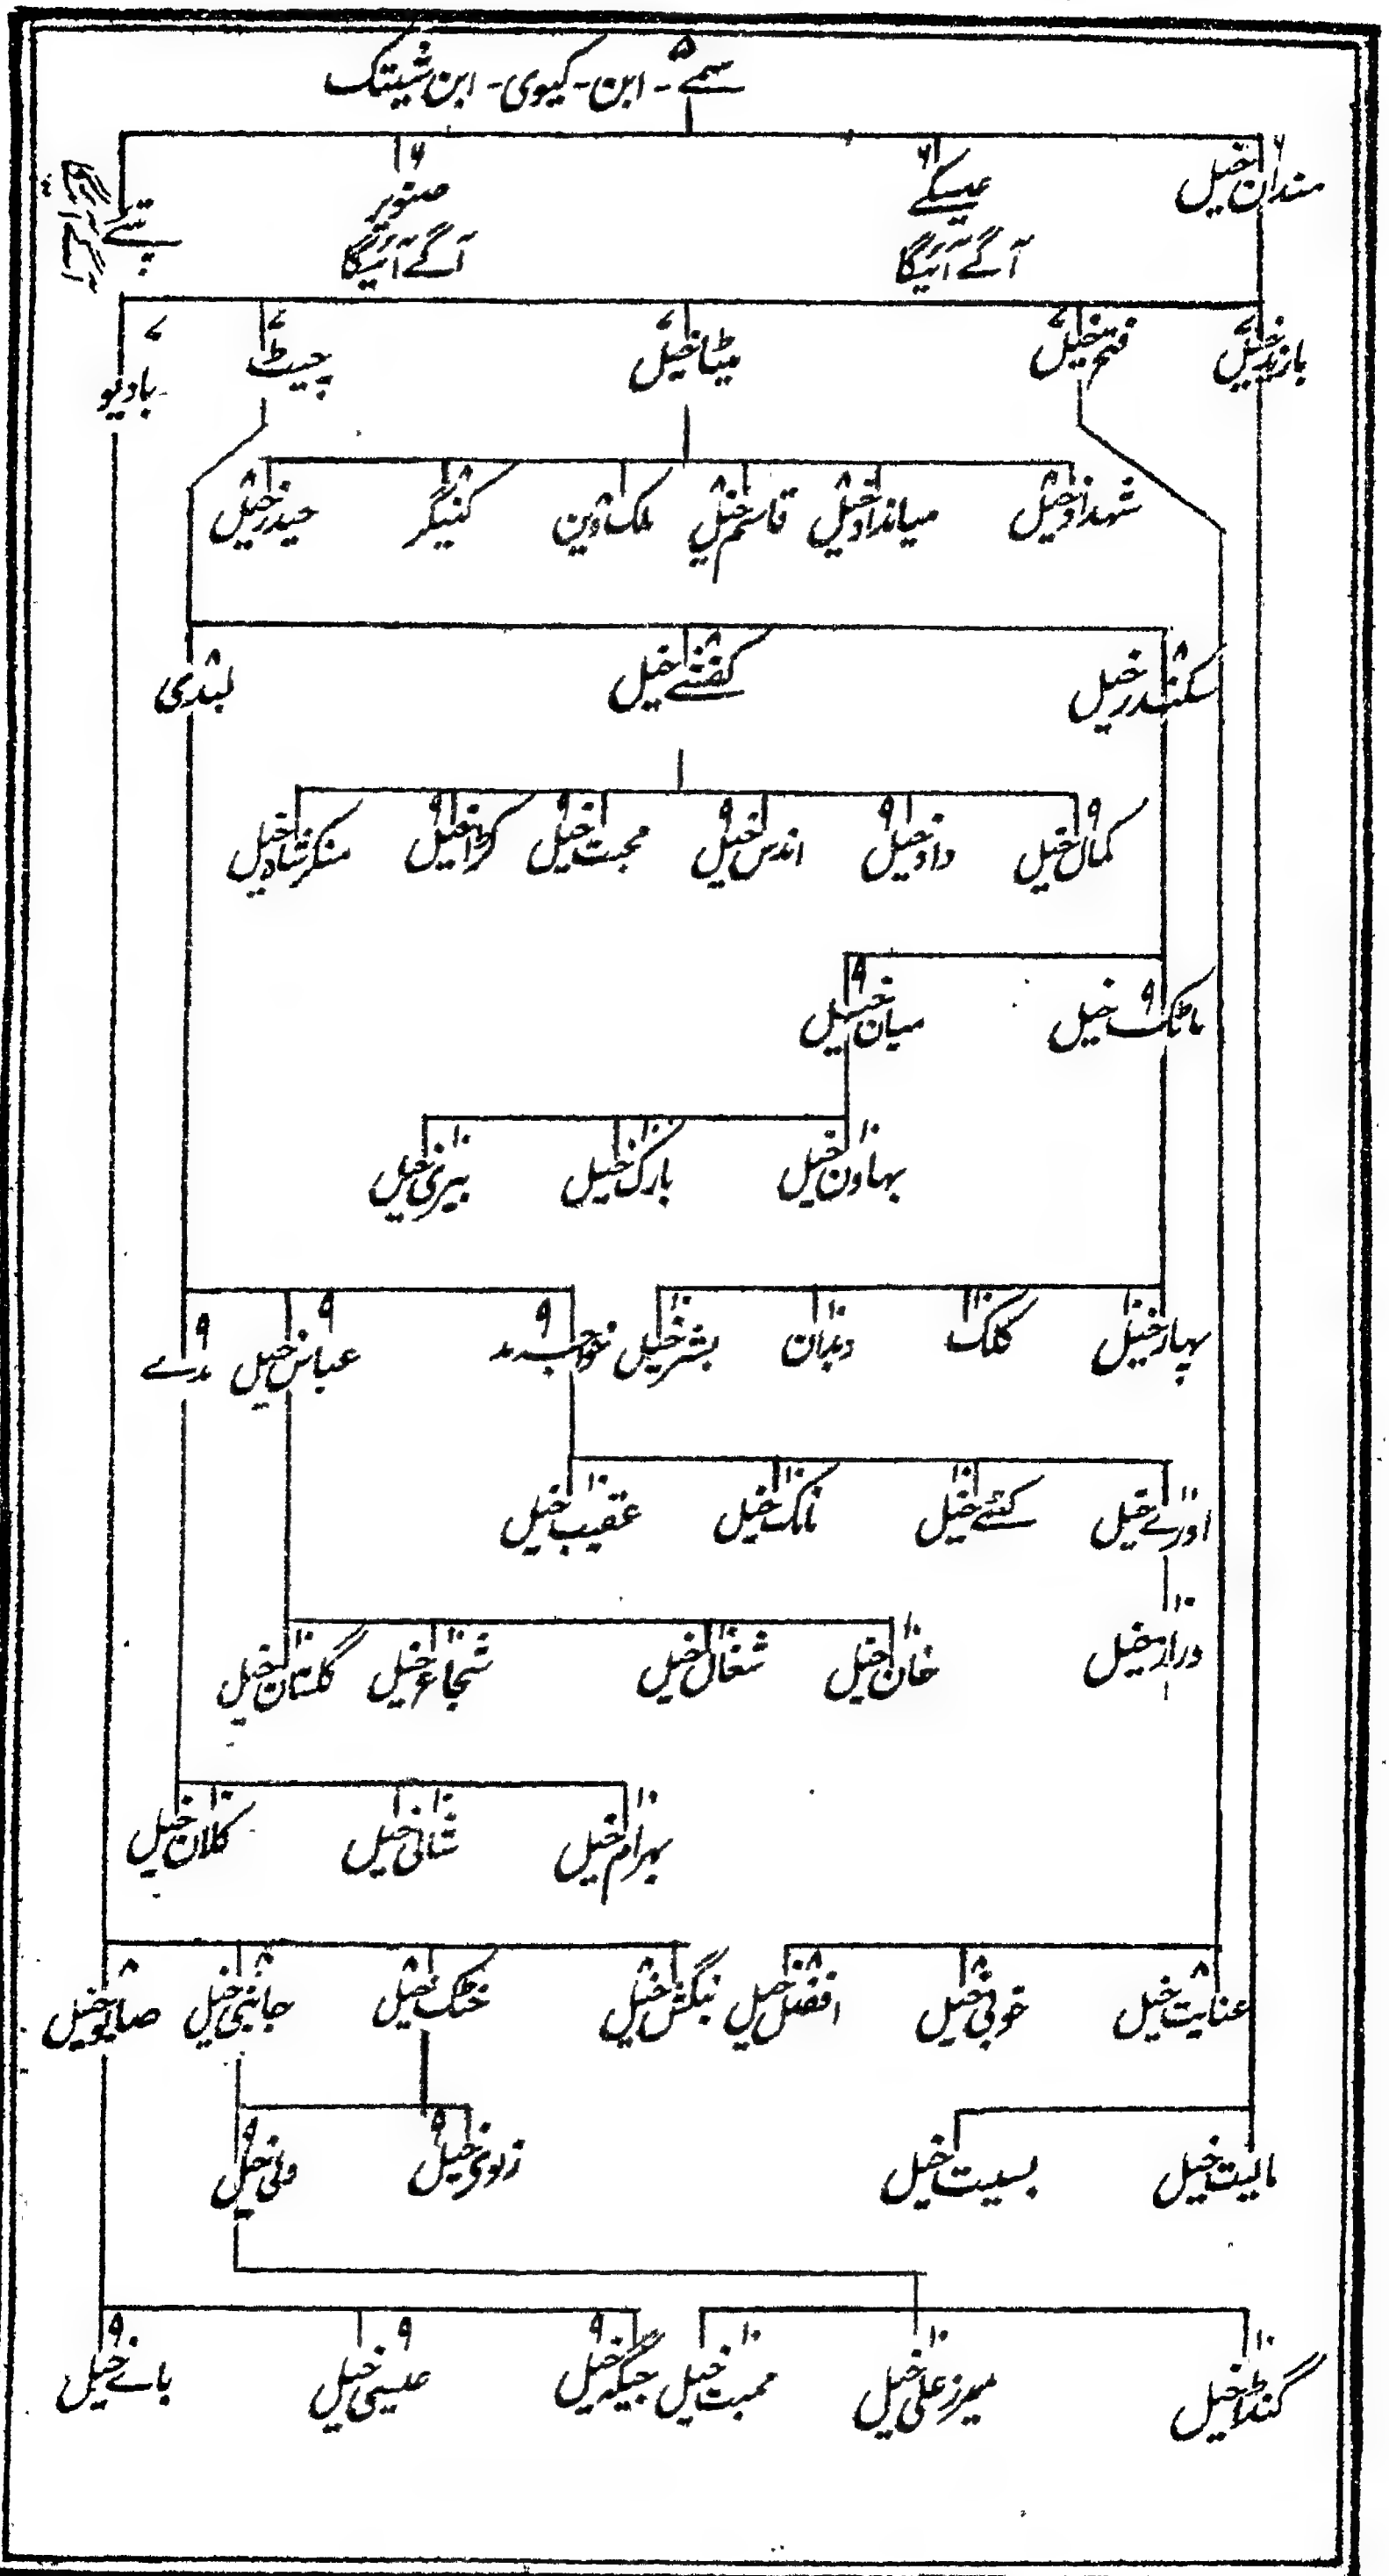 سمے ۵ - ابن - کیوی - ابن شیتک
مندان خیل ۶ عیسکے ۶ صنوبر ۶ پتے
آگے آئیگا آگے آئیگا
بازید خیل ۷ فتح خیل ۷ میٹا خیل ۷ چیٹ ۷ بادیو ۷
شہداد خیل ۸ میانداد خیل ۸ قاسم خیل ۸ ملک دین ۸ کنیگر ۸ حیدر خیل ۸
سکندر خیل ۸ کفشے خیل ۸ لبدی ۸
کمال خیل ۹ داود خیل ۹ اندس خیل ۹ محبت خیل ۹ کڑا خیل ۹ منکر شاہ خیل
ماٹک خیل ۹ میان خیل ۹
بہاون خیل ۱۰ بارک خیل ۱۰ بیری خیل ۱۰
پہار خیل ۱۰ کلک ۱۰ دیدان ۱۰ بشر خیل ۱۰ خواجہ مد ۹ عباس خیل ۹ مدے ۹
اورے خیل ۱۱ کٹے خیل ۱۰ نانک خیل ۱۰ عقیب خیل ۱۰
دراز خیل ۱۰ خان خیل ۱۰ شغال خیل ۱۰ شجاع خیل ۱۰ گلستان خیل ۱۰
بہرام خیل ۱۰ شانی خیل ۱۰ کلان خیل ۱۰
عنایت خیل ۸ خوبی خیل ۸ افضل خیل ۸ بنگش خیل ۸ خٹک خیل ۸ جانبی خیل ۸ صابو خیل ۸
مالیت خیل بسیت خیل زلوزی خیل ۹ ولی خیل ۹
گنڈا خیل ۱۰ میرز علی خیل ۱۰ ممبت خیل ۱۰ جیگہ خیل ۹ عیسی خیل ۹ بانے خیل ۹